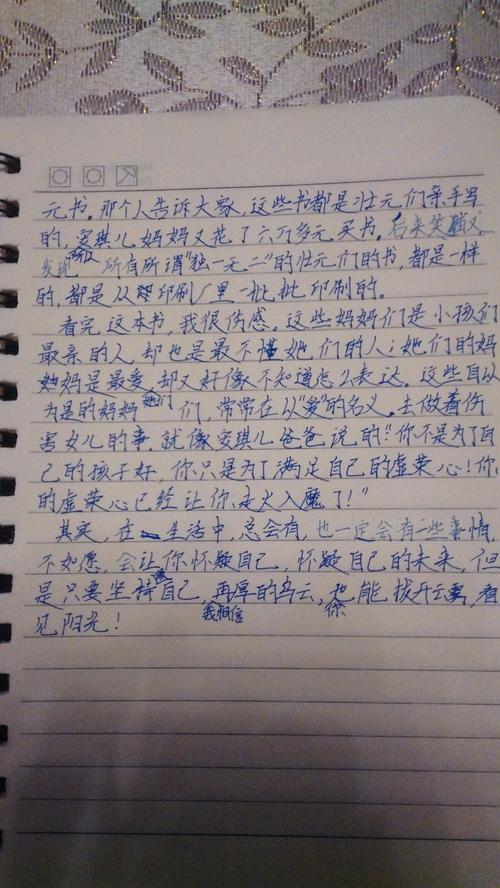 元书。那个人告诉大家,这些书都是壮元们亲手写
的,安琪儿妈妈又花了六万多元买书。后来笑猫又
发现 所有所谓“独一无二”的壮元们的书,都是一样
的,都是从印刷厂里一批批印刷的。
看完这本书,我很伤感。这些妈妈们是小孩们
最亲的人,却也是最不懂她们的人;她们的妈
妈是最爱,却又好像不知道怎么表达。这些自以
为是的妈妈们,常常在以“爱”的名义。去做着伤
害女儿的事。就像安琪儿爸爸说的:“你不是为了自
己的孩子好,你只是为了满足自己的虚荣心!你
的虚荣心已经让你走火入魔了!”
其实,在生活中,总会有,也一定会有一些事情,
不如愿,会让你怀疑自己,怀疑自己的未来,但
是只要坚持自己,再厚的乌云,我相信你能拔开云雾,看
见阳光!